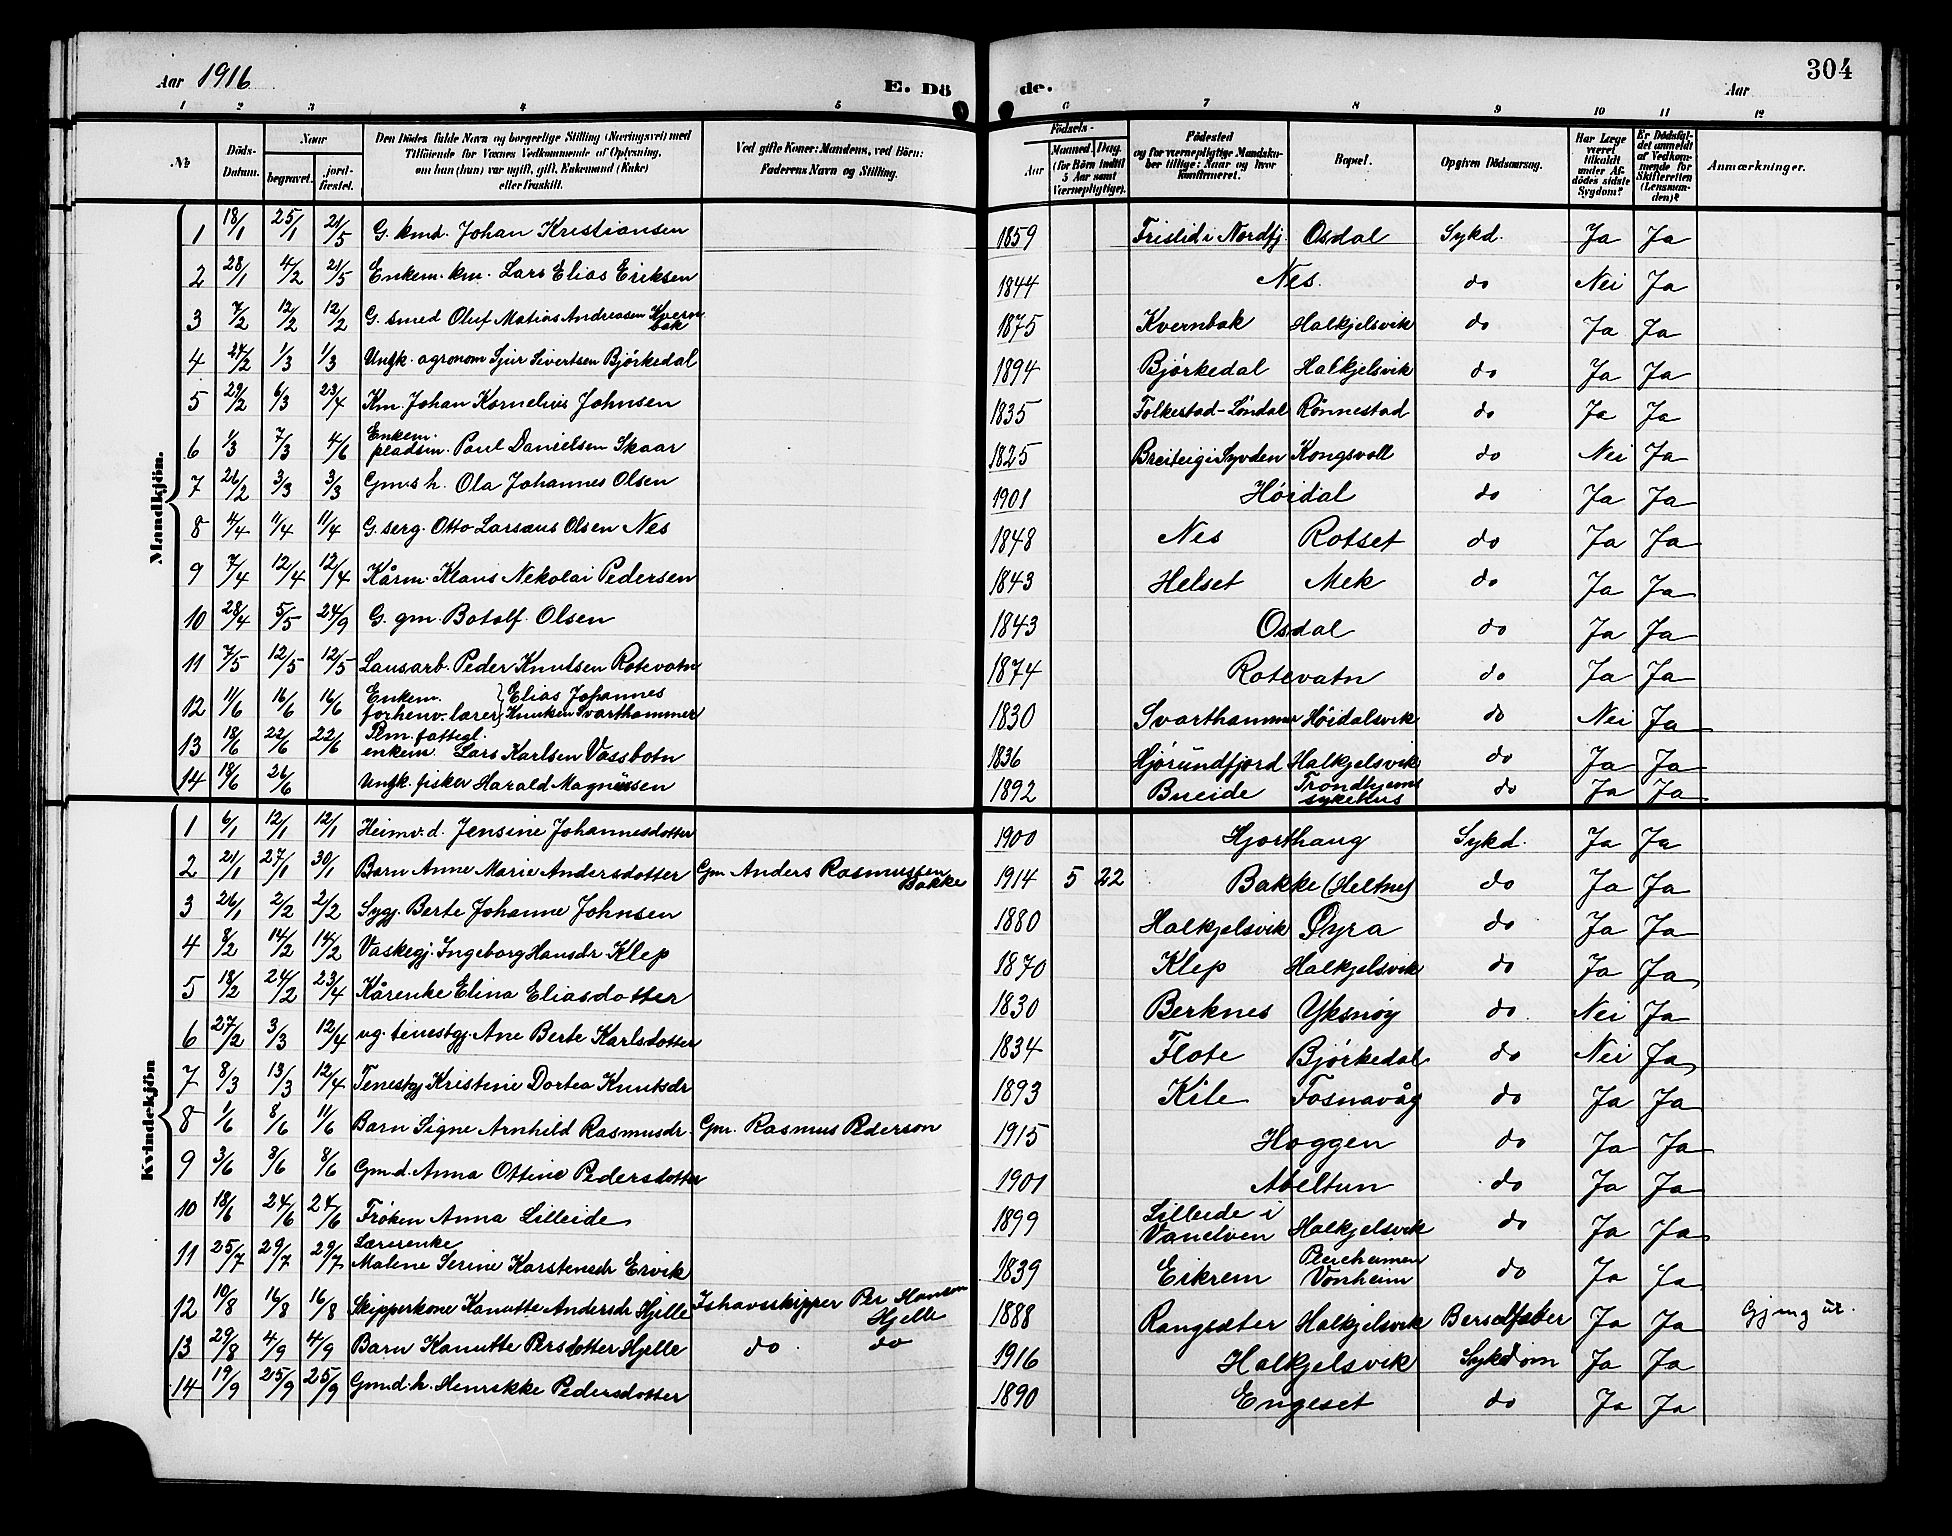 Aar 1916 E. Dö de. Aar 304
1 2 3 4 5 6 7 8 9 10 11 12
No Döds-Datum. Naar begravet. jord-fæstet. Den Dödes fulde Navn og borgerlige Stilling (Næringsvei) med Tilföiende for Voxnes Vedkommende af Oplysning, om han (hun) var ugift, gift, Enkemand (Enke) eller fraskilt. Ved gifte Koner: Mandens, ved Börn: Faderens Navn og Stilling. Födsels- Aar Maaned. Dag. (for Börn indtil 5 Aar samt Værnepligtige). Födested og for værnepligtige Mandskaber tillige: Naar og hvor konfirmeret. Bopæl. Opgiven Dödsaarsag. Har Læge været tilkaldt under Afdödes sidste Sygdom? Er Dödsfaldet anmeldt af Vedkommende for Skifteretten (Lensmanden)? Anmærkninger.
Mandkjön.
1 18/1 25/1 21/5 G. kmd. Johan Kristiansen 1859 Frislid i Nordfj. Osdal Sykd. Ja Ja
2 28/1 4/2 21/5 Enkem. km. Lars Elias Eriksen 1844 Nes. do Nei Ja
3 7/2 12/2 12/2 G. smed Oluf Matias Andreasen Kvernbak 1875 Kvernbak Halkjelsvik do Ja Ja
4 24/2 1/3 1/3 Ungk. agronom Sjur Sivertsen Björkedal 1894 Björkedal Halkjelsvik do Ja Ja
5 29/2 6/3 23/4 Km. Johan Kornelius Johnsen 1835 Folkestad-Löndal Rönnestad do Ja Ja
6 1/3 7/3 4/6 Enkem. pladsm. Paul Danielsen Skaar 1825 Breiteig i Syvden Kongsvoll do Nei Ja
7 26/2 3/3 3/3 Gm.s h. Ola Johannes Olsen 1901 Höidal do Ja Ja
8 4/4 11/4 11/4 G. serg. Otto Larsæus Olsen Nes 1848 Nes Rotset do Ja Ja
9 7/4 12/4 12/4 Kårm. Klaus Nekolai Pedersen 1843 Helset Mek do Ja Ja
10 28/4 5/5 24/9 G. gm. Botolf Olsen 1843 Osdal do Ja Ja
11 7/5 12/5 12/5 Lausarb. Peder Knutsen Rotevatn 1874 Rotevatn do Ja Ja
12 11/6 16/6 16/6 Enkem. forhenv. lærer Elias Johannes Knutsen Svarthammer 1830 Svarthammer Höidalsvik do Nei Ja
13 18/6 22/6 22/6 Plm. fattigl. enkem. Lars Karlsen Vassbotn 1836 Hjörundfjord Halkjelsvik do Ja Ja
14 18/6 26/6 Ungk. fisker Harald Magnussen 1892 Bueide Trondhjems sykehus do Ja Ja
Kvindekjön
1 6/1 12/1 12/1 Heimv. d. Jensine Johannesdotter 1900 Hjorthaug Sykd. Ja Ja
2 21/1 27/1 30/1 Barn Anne Marie Andersdotter Gm Anders Rasmussen Bakke 1914 5 22 Bakke (Heltne) do Ja Ja
3 26/1 2/2 2/2 Sygj. Berte Johanne Johnsen 1880 Halkjelsvik Öyra do Ja Ja
4 8/2 14/2 14/2 Vaskegj. Ingeborg Hansdr Klep 1870 Klep Halkjelsvik do Ja Ja
5 18/2 24/2 23/4 Kårenke Elina Eliasdotter 1830 Berknes Yksnöy do. Nei Ja
6 27/2 3/3 12/4 ug. tenestgj. Ane Berte Karlsdotter 1834 Flote Björkedal do Nei Ja
7 8/3 13/3 12/4 Tenestgj Kristine Dortea Knutsdr 1893 Kile Fosnavåg do Ja Ja
8 1/6 8/6 11/6 Barn Signe Arnhild Rasmusdr. Gm. Rasmus Pederson 1915 Hoggen do Ja Ja
9 3/6 8/6 8/6 Gm.d. Anna Ottine Pedersdotter 1901 Abeltun do Ja Ja
10 18/6 24/6 24/6 Fröken Anna Lilleide 1899 Lilleide i Vanelven Halkjelsvik do Ja Ja
11 25/7 29/7 29/7 Lærerenke Malene Serine Karstensdr Ervik 1839 Eikrem Pleieheimen Vonheim do Ja Ja
12 10/8 16/8 16/8 Skipperkone Kanutte Andersdr Hjelle Ishavsskipper Per Hanson Hjelle 1888 Rangsæter Halkjelsvik Barselfeber Ja Ja
13 29/8 4/9 4/9 Barn Kanutte Persdotter Hjelle do do 1916 Halkjelsvik Sykdom Ja Ja
14 19/9 25/9 25/9 Gm.d.h. Henrikke Pedersdotter 1890 Engeset do Ja Ja